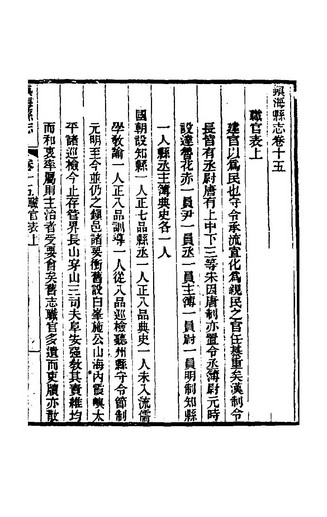 鎮海縣志卷十五
職官表上
建官以爲民也守令承流宣化爲親民之官任綦重矣漢制令
長皆有丞尉唐有上中下三等宋因唐制亦置令丞簿尉元時
設達魯花赤一員尹一員丞一員主簿一員尉一員明制知縣
一人縣丞主簿典史各一人
國朝設知縣一人正七品縣丞一人正八品典史一人未入流儒
學教諭一人正八品訓導一人從八品巡檢聽州縣守令節制
元明至今並仍之鎮邑諸要衝舊設白峯施公山海內霞嶼太
平諸巡檢今止存管界長山穿山三司夫阜安强教其責維均
而和衷率屬則主治者受要會矣舊志職官多遺而吏牘亦散
鎮海縣志
卷十五職官表上
一